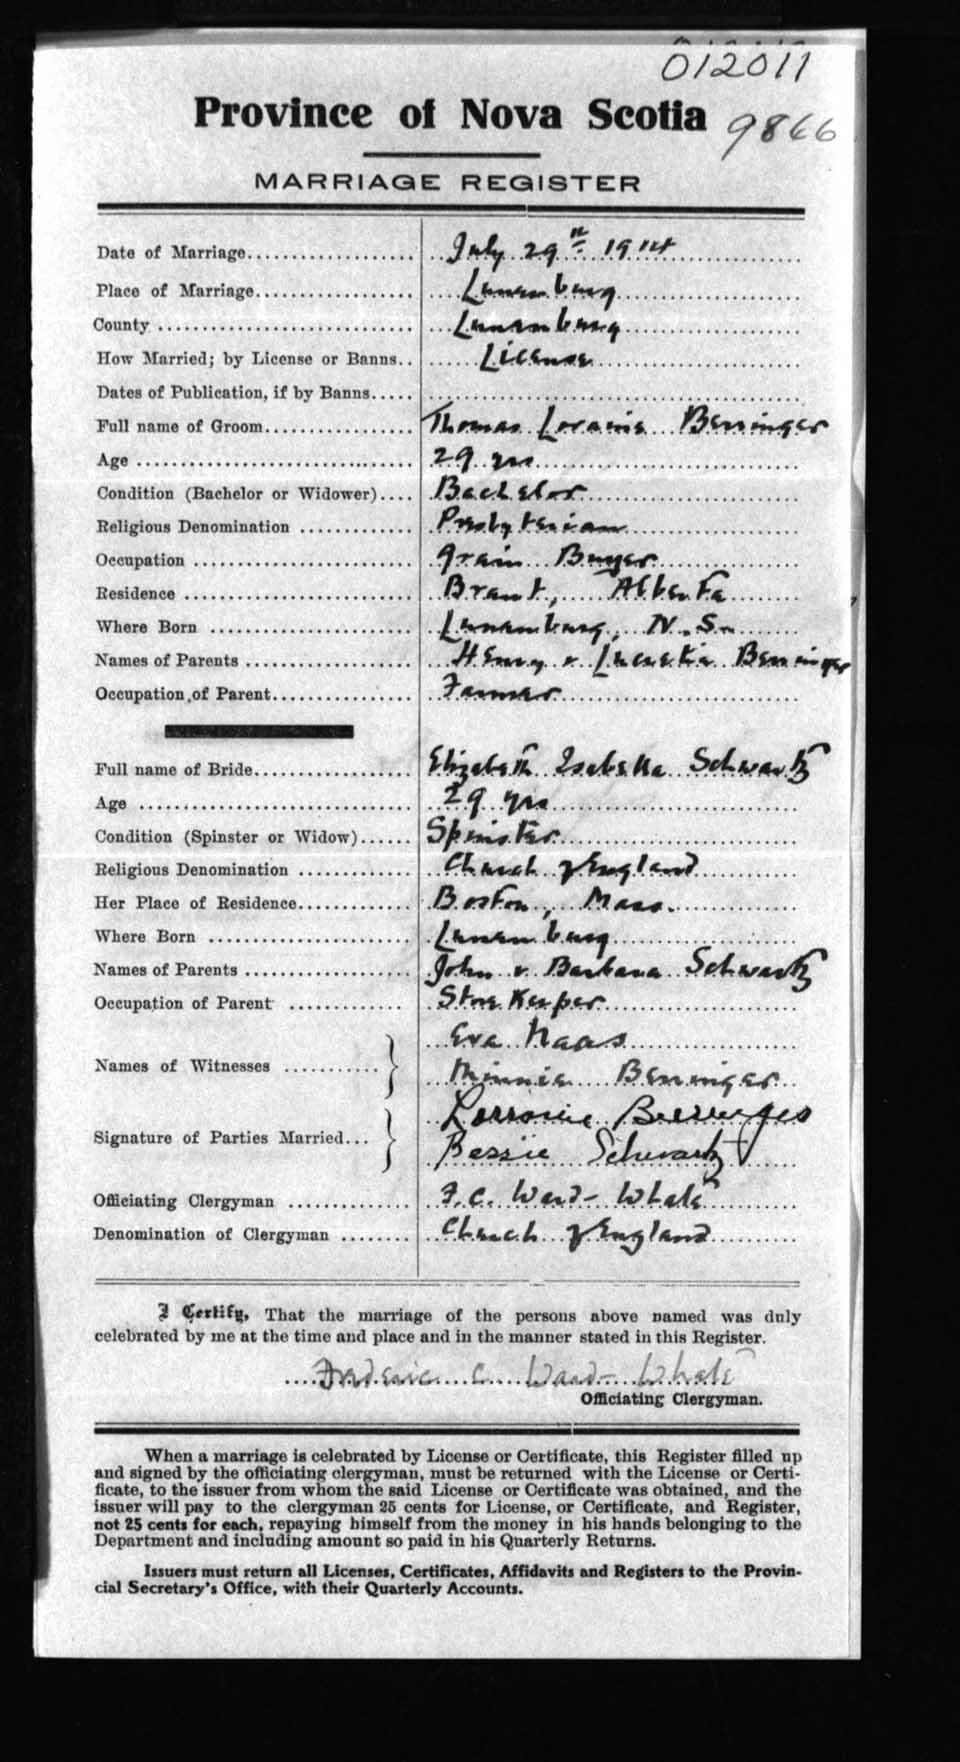 012011
Province of Nova Scotia
9866
MARRIAGE REGISTER
Date of Marriage................... July 29th 1914
Place of Marriage.................. Lunenburg
County ............................ Lunenburg
How Married; by License or Banns.. License
Dates of Publication, if by Banns.....
Full name of Groom................. Thomas Loraine Beninger
Age ............................... 29 yrs
Condition (Bachelor or Widower).... Bachelor
Religious Denomination ............. Presbyterian
Occupation ......................... Grain Buyer
Residence .......................... Brant, Alberta
Where Born ....................... Lunenburg, N.S.
Names of Parents ................... Henry & Lucretia Beninger
Occupation of Parent................ Farmer
Full name of Bride.................. Elizabeth Isabella Schwartz
Age ............................... 29 yrs
Condition (Spinster or Widow)...... Spinster
Religious Denomination ............. Church of England
Her Place of Residence............. Boston, Mass.
Where Born ....................... Lunenburg
Names of Parents ................... John & Barbara Schwartz
Occupation of Parent ............. Store Keeper
Names of Witnesses ........... Eva Naas
Minnie Beninger
Signature of Parties Married... Lorraine Beninger
Bessie Schwartz
Officiating Clergyman .............. F. C. Ward-Whate
Denomination of Clergyman ........ Church of England
I Certify, That the marriage of the persons above named was duly
celebrated by me at the time and place and in the manner stated in this Register.
Frederic C. Ward-Whate
Officiating Clergyman.
When a marriage is celebrated by License or Certificate, this Register filled up
and signed by the officiating clergyman, must be returned with the License or Certi-
ficate, to the issuer from whom the said License or Certificate was obtained, and the
issuer will pay to the clergyman 25 cents for License, or Certificate, and Register,
not 25 cents for each, repaying himself from the money in his hands belonging to the
Department and including amount so paid in his Quarterly Returns.
Issuers must return all Licenses, Certificates, Affidavits and Registers to the Provin-
cial Secretary's Office, with their Quarterly Accounts.